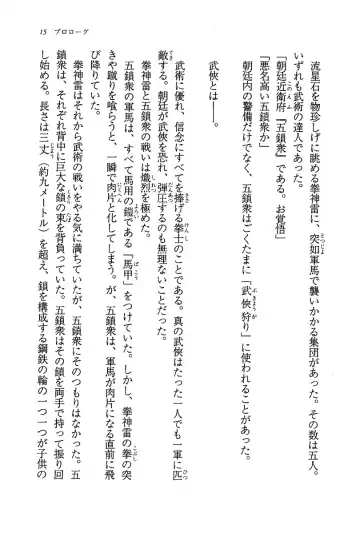 15 プロローグ
流星石を物珍しげに眺める拳神雷に、突如軍馬で襲いかかる集団があった。その数は五人。
いずれも武術の達人であった。
「朝廷近衛府『五鎖衆』である。お覚悟」
「悪名高い五鎖衆か」
朝廷内の警備だけでなく、五鎖衆はごくたまに「武侠狩り」に使われることがあった。
武侠とは──。
武術に優れ、信念にすべてを捧げる拳士のことである。真の武侠はたった一人でも一軍に匹
敵する。朝廷が武侠を恐れ、弾圧するのも無理ないことだった。
拳神雷と五鎖衆の戦いは熾烈を極めた。
五鎖衆の軍馬は、すべて馬用の鎧である「馬甲」をつけていた。しかし、拳神雷の拳の突
きや蹴りを喰らうと、一瞬で肉片と化してしまう。が、五鎖衆は、軍馬が肉片になる直前に飛
び降りていた。
拳神雷はそれから武術の戦いをやる気に満ちていたが、五鎖衆にそのつもりはなかった。五
鎖衆は、それぞれ背中に巨大な鎖の束を背負っていた。五鎖衆はその鎖を両手で持って振り回
し始める。長さは三丈（約九メートル）を超え、鎖を構成する鋼鉄の輪の一つ一つが子供の